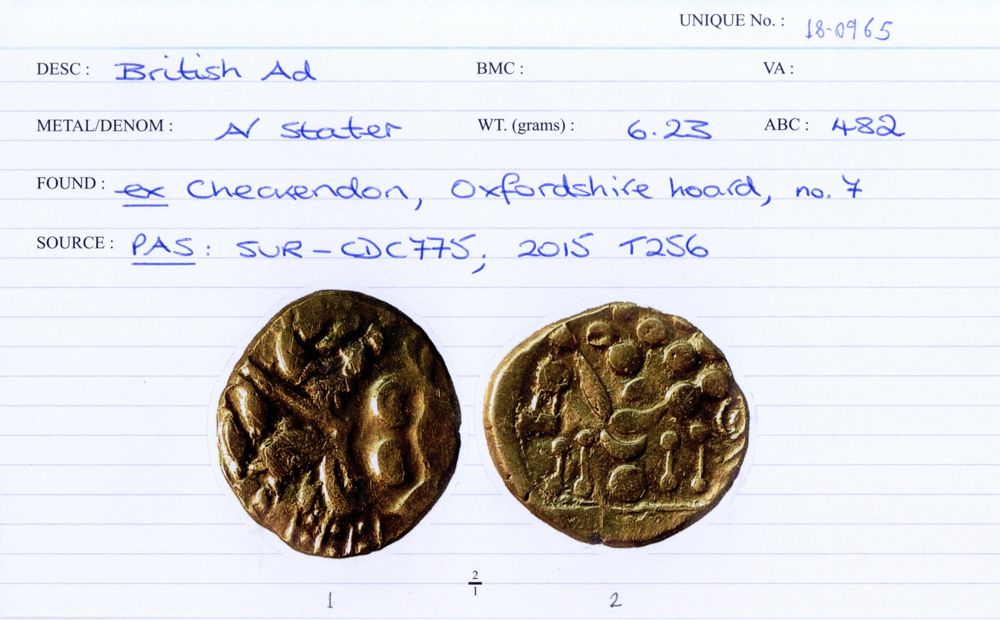 UNIQUE No. : 18-0965
DESC : British Ad BMC : VA :
METAL/DENOM : N Stater WT. (grams) : 6.23 ABC : 482
FOUND : ex Checkendon, Oxfordshire hoard, no. 7
SOURCE : PAS: SUR-CDC775; 2015 T256
2/1
1 2